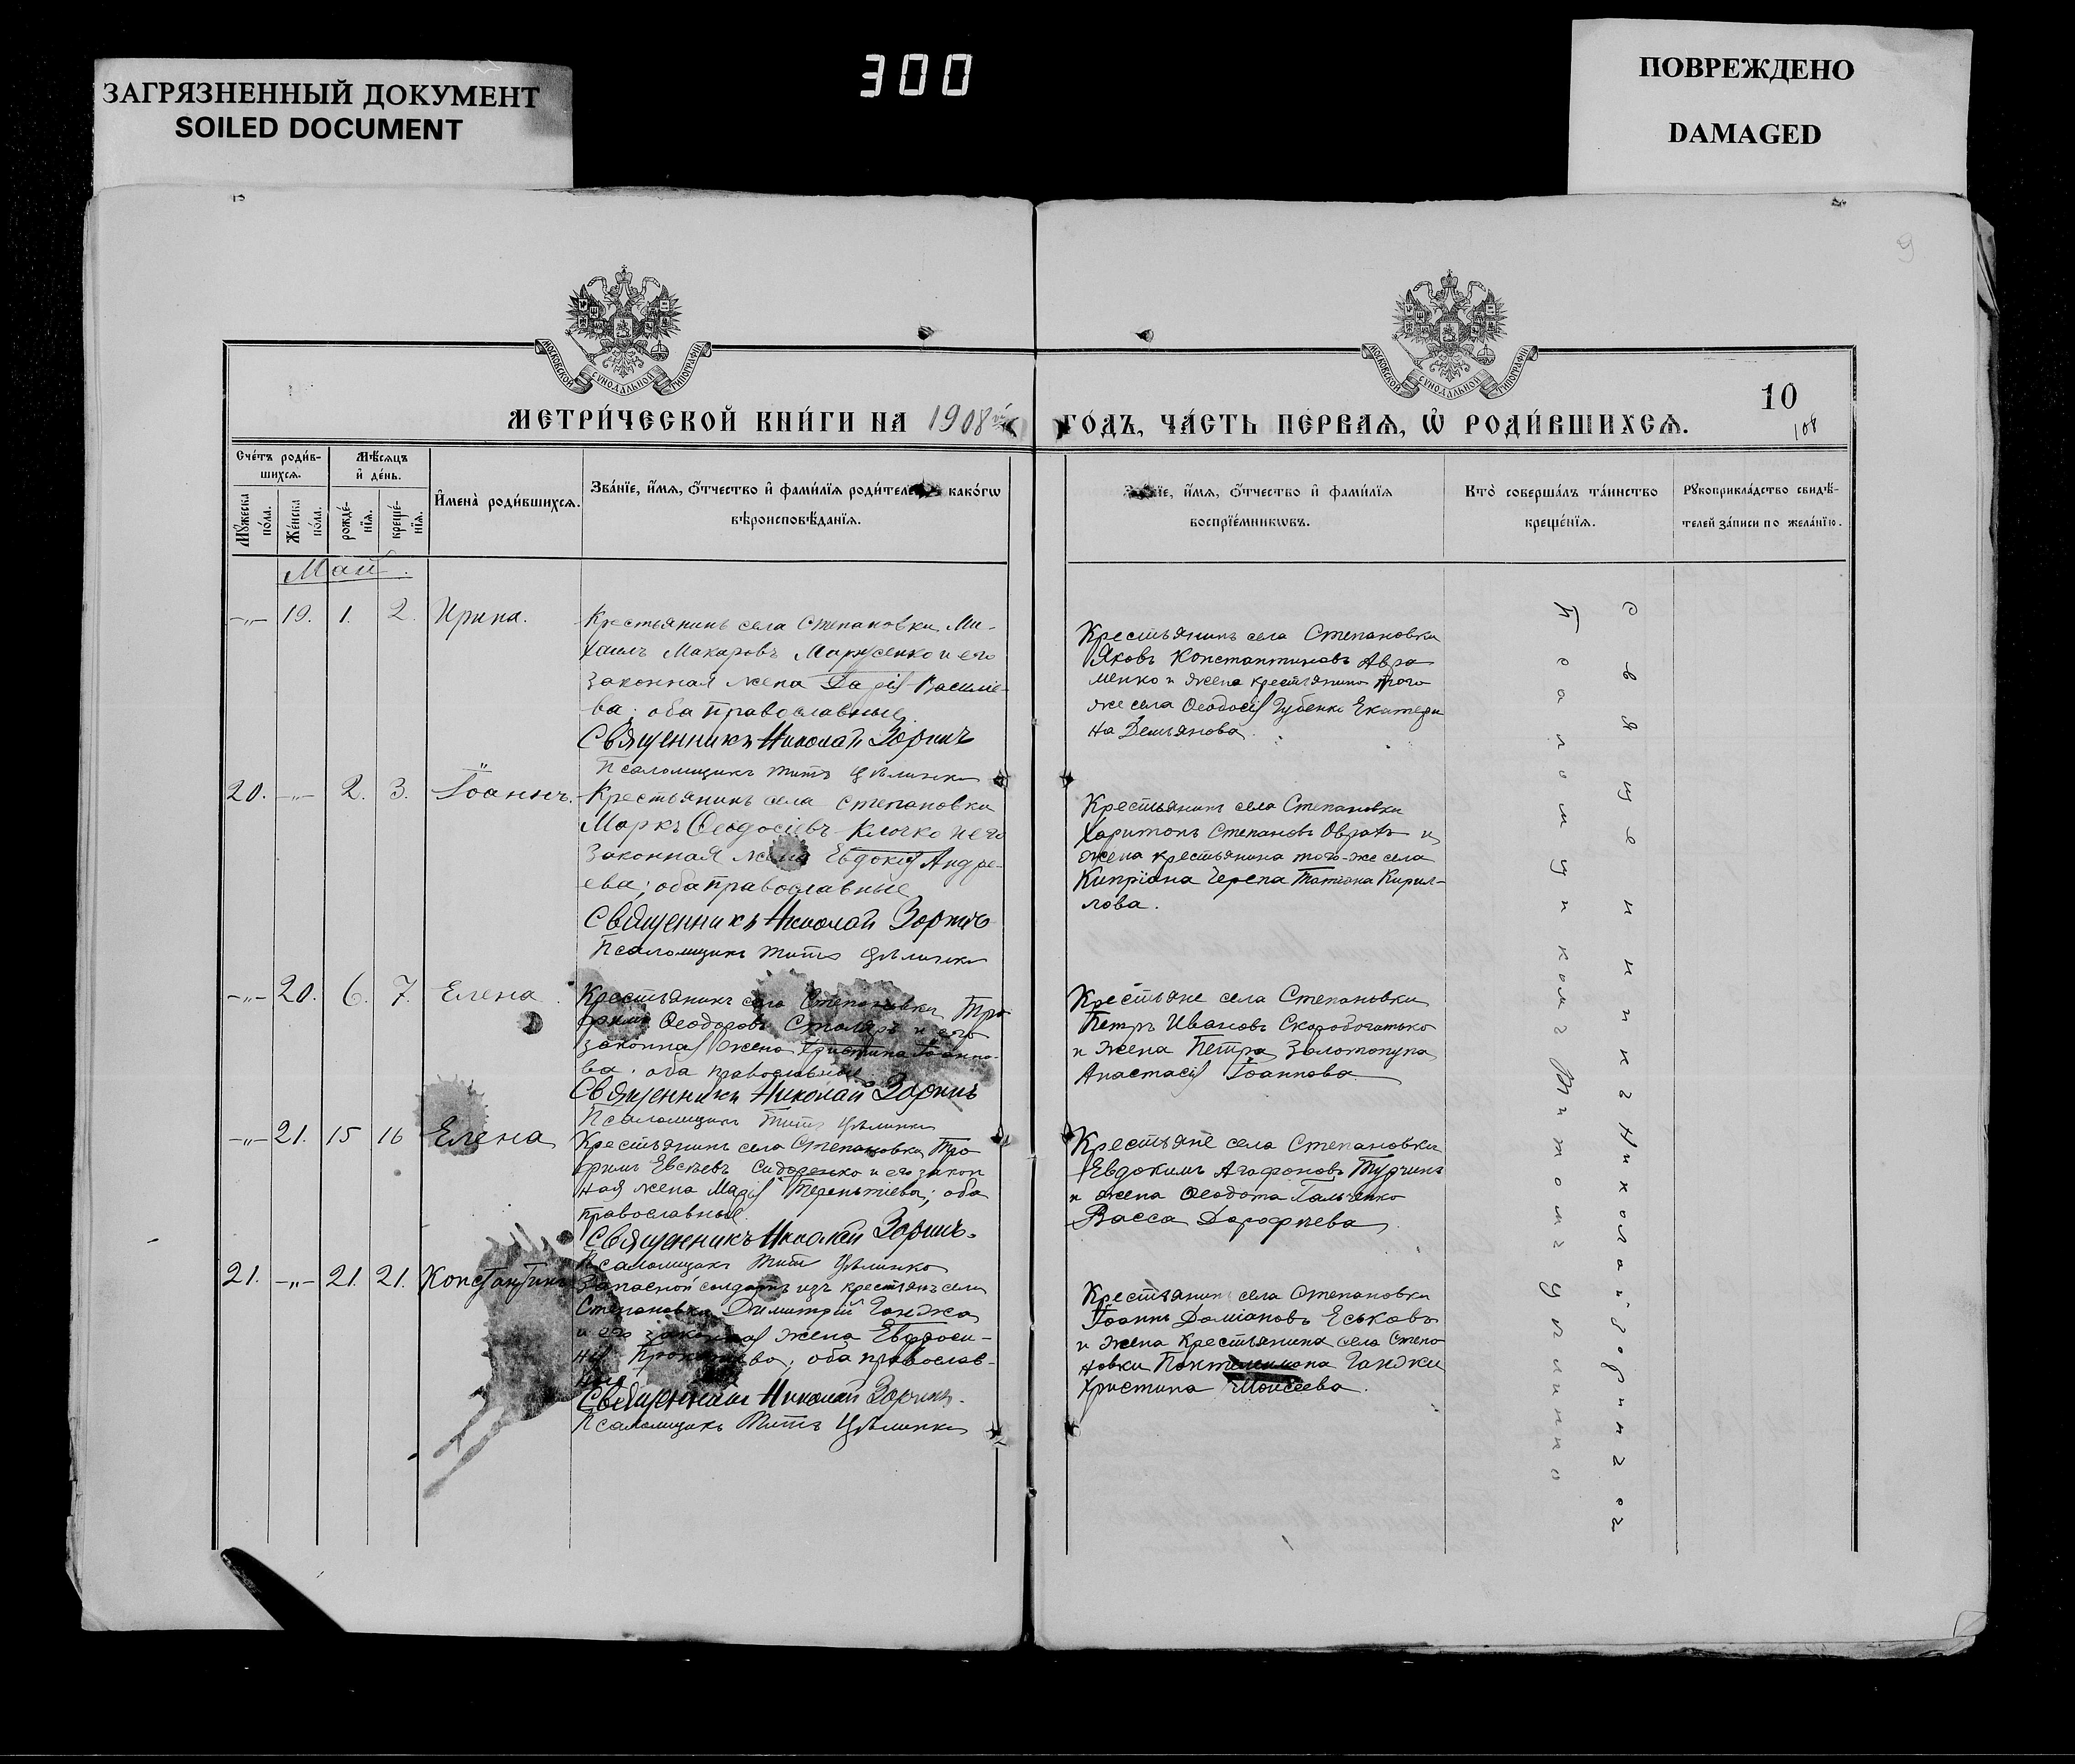 ЗАГРЯЗНЕННЫЙ ДОКУМЕНТ
SOILED DOCUMENT
300
ПОВРЕЖДЕНО
DAMAGED
9
МОСКОВСКОЙ СѴНОДАЛЬНОЙ ТИПОГРАФІИ
МОСКОВСКОЙ СѴНОДАЛЬНОЙ ТИПОГРАФІИ
МЕТРИ́ЧЕСКОЙ КНИ́ГИ НА 1908
ГО́ДЪ, ЧА́СТЬ ПЕ́РВАѦ, Ѡ҆ РОДИ́ВШИХСѦ.
10
108
Сче́тъ роди́в-
шихсѧ.
Мѣ́сѧцъ
и҆ де́нь.
Мꙋ́жеска
по́ла.
Же́нска
по́ла.
рожде́-
нїѧ.
креще́-
нїѧ.
И҆мена̀ роди́вшихсѧ.
Зва́нїе, и҆́мѧ, ѻ҆́тчество и҆ фами́лїѧ роди́теле како́гѡ
вѣроисповѣ́данїѧ.
и҆́мѧ, ѻ҆́тчество и҆ фами́лїѧ
воспрїе́мникѡвъ.
Кто̀ соверша́лъ та́инство
креще́нїѧ.
Рꙋкоприкла́дство свидѣ́-
телей за́писи по жела́нїю.
Май.
-"- 19. 1. 2. Ирина.
Крестьянинъ села Степановки Ми-
хаилъ Макаровъ Марусенко и его
законная жена Дарія Василіе-
ва; оба православные.
Священникъ Николай Зоринъ
Псаломщикъ Титъ Цѣлинко
Крестьянинъ села Степановки
Яковъ Константиновъ Авра
менко и жена крестьянина того
же села Ѳеодосія Губенко Екатери
на Демьянова.
20. -"- 2. 3. Іоаннъ.
Крестьянинъ села Степановки
Маркъ Ѳеодосіевъ Клочко и его
законная жена Евдокія Андре-
ева; оба православные
Священникъ Николай Зоринъ
Псаломщикъ Титъ Цѣлинко
Крестьянинъ села Степановки
Харитонъ Степановъ и
жена крестьянина того-же села
Кипріана Черепа Татіана Кирил-
лова.
-"- 20. 6. 7. Елена.
Крестьянинъ села Степановки Тро
фимъ Ѳеодоровъ Столяръ и его
законная жена Христина Іоанно-
ва; оба православные
Священникъ Николай Зоринъ
Псаломщикъ Титъ Цѣлинко
Крестьяне села Степановки
Петръ Ивановъ Скоробогатько
и жена Петра Золотопупа
Анастасія Іоаннова.
-"- 21. 15 16 Елена
Крестьянинъ села Степановки Тро
фимъ Евсѣевъ Сидоренко и его закон
ная жена Марія Терентіева; оба
православные.
Священникъ Николай Зоринъ.
Псаломщикъ Титъ Цѣлинко
Крестьяне села Степановки
Евдокимъ Агафоновъ Турчинъ
и жена Ѳеодота Гальченко
Васса Дорофѣева.
21. -"- 21. 21. Константинъ
Запасной солдатъ изъ крестьянъ села
Степановки Димитрій Ганджа
и его законная жена Евфроси-
нія; оба православ-
ные
Священникъ Николай Зоринъ.
Псаломщикъ Титъ Цѣлинко
Крестьянинъ села Степановки
Іоаннъ Даміановъ Еськовъ
и жена крестьянина села Степа
новки Пантелеимона Ганджи
Христина Моисеева.
Священникъ Николай Зоринъ съ
Псаломщикомъ Титомъ Цѣлинко